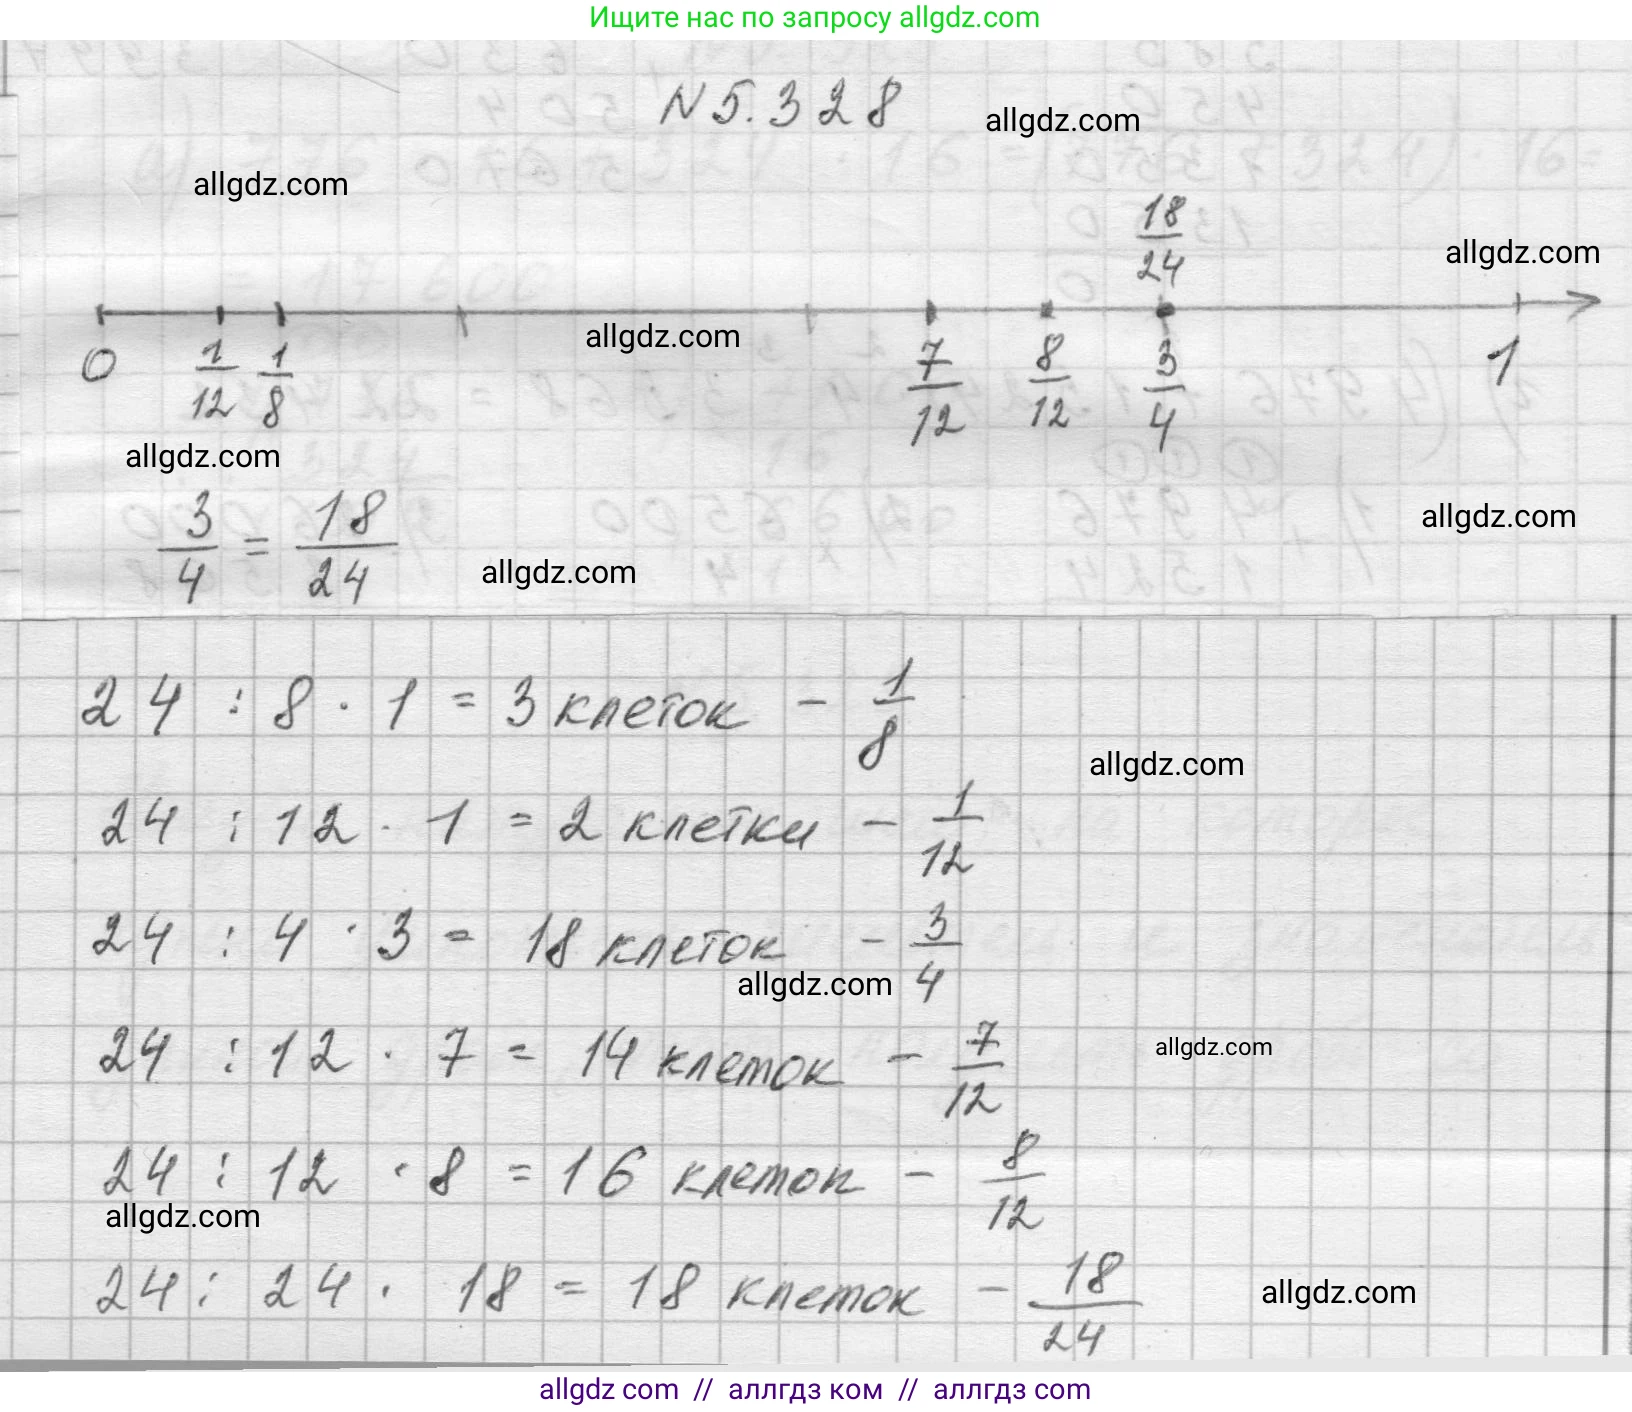 Ищите нас по запросу allgdz.com
N 5.328
allgdz.com
allgdz.com
18/24
allgdz.com
allgdz.com
0 1/12 1/8 7/12 8/12 3/4 1
allgdz.com
3/4 = 18/24
allgdz.com
allgdz.com
24 : 8 · 1 = 3 клеток - 1/8
allgdz.com
24 : 12 · 1 = 2 клетки - 1/12
24 : 4 · 3 = 18 клеток - 3/4
allgdz.com
24 : 12 · 7 = 14 клеток - 7/12
allgdz.com
24 : 12 · 8 = 16 клеток - 8/12
allgdz.com
24 : 24 · 18 = 18 клеток - 18/24
allgdz.com
allgdz com // аллгдз ком // аллгдз com